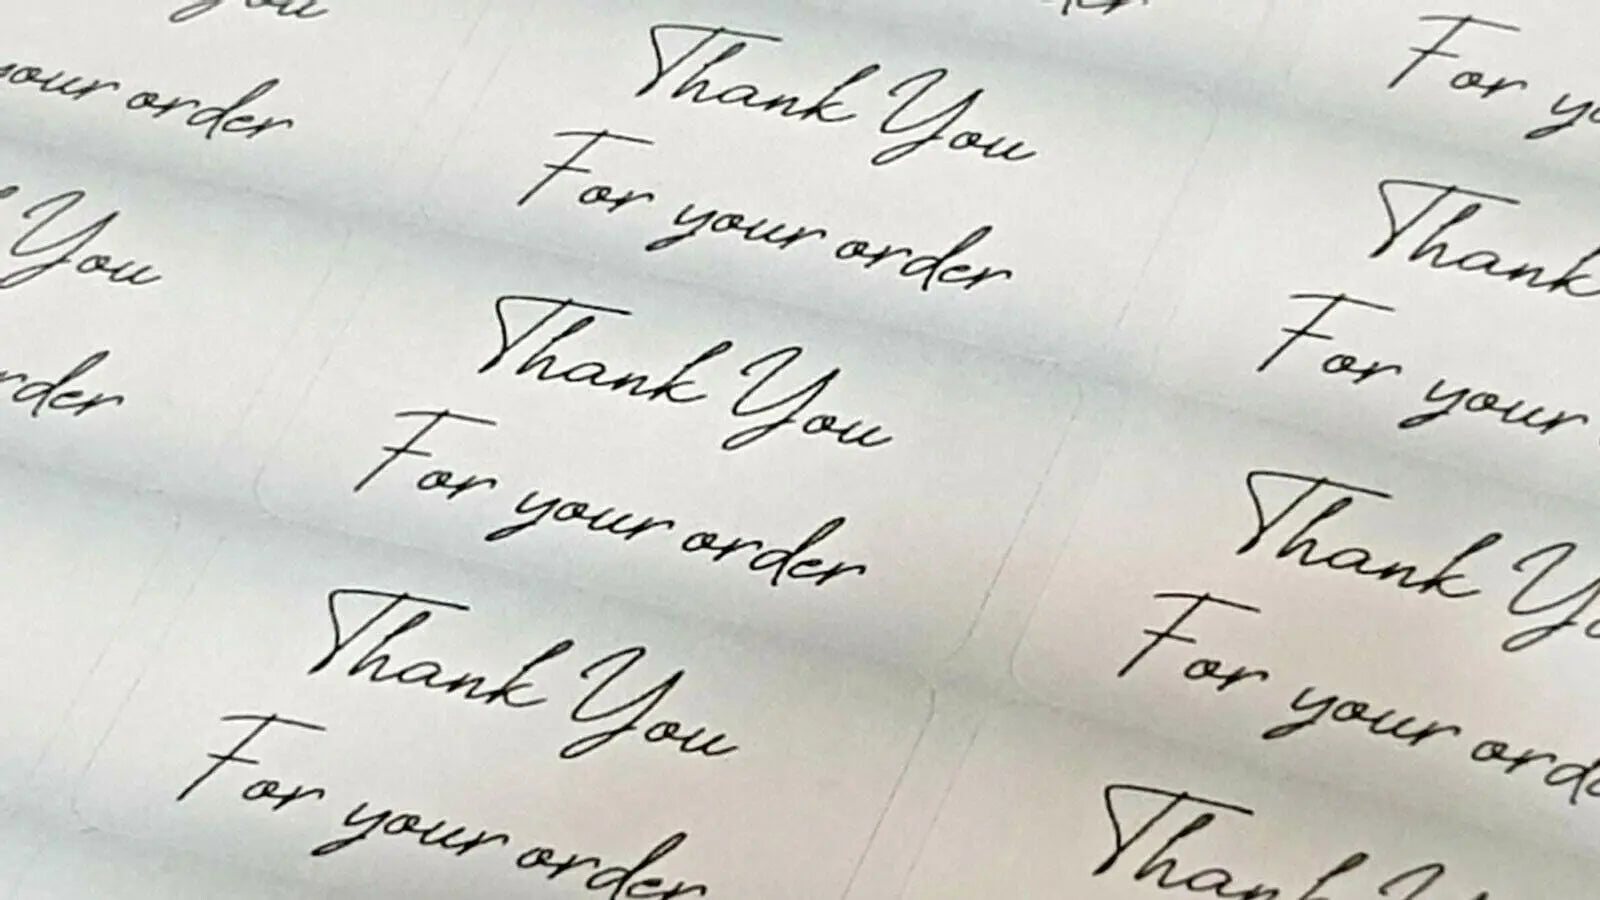 you
your order
You
order
Thank You
For your order
Thank You
For your order
Thank You
For your order
For yo
Thank
For your
Thank Yo
For your orde
Thank Y